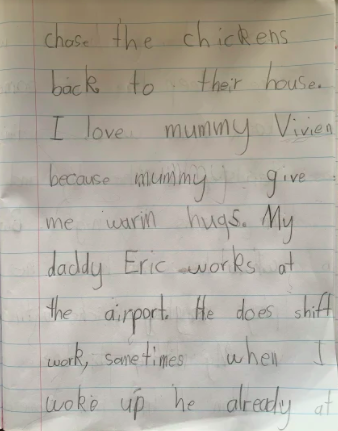 chase the chickens
back to their house.
I love mummy Vivien
because mummy give
me warm hugs. My
daddy Eric works at
the airport. He does shift
work, sometimes when I
woke up he already at